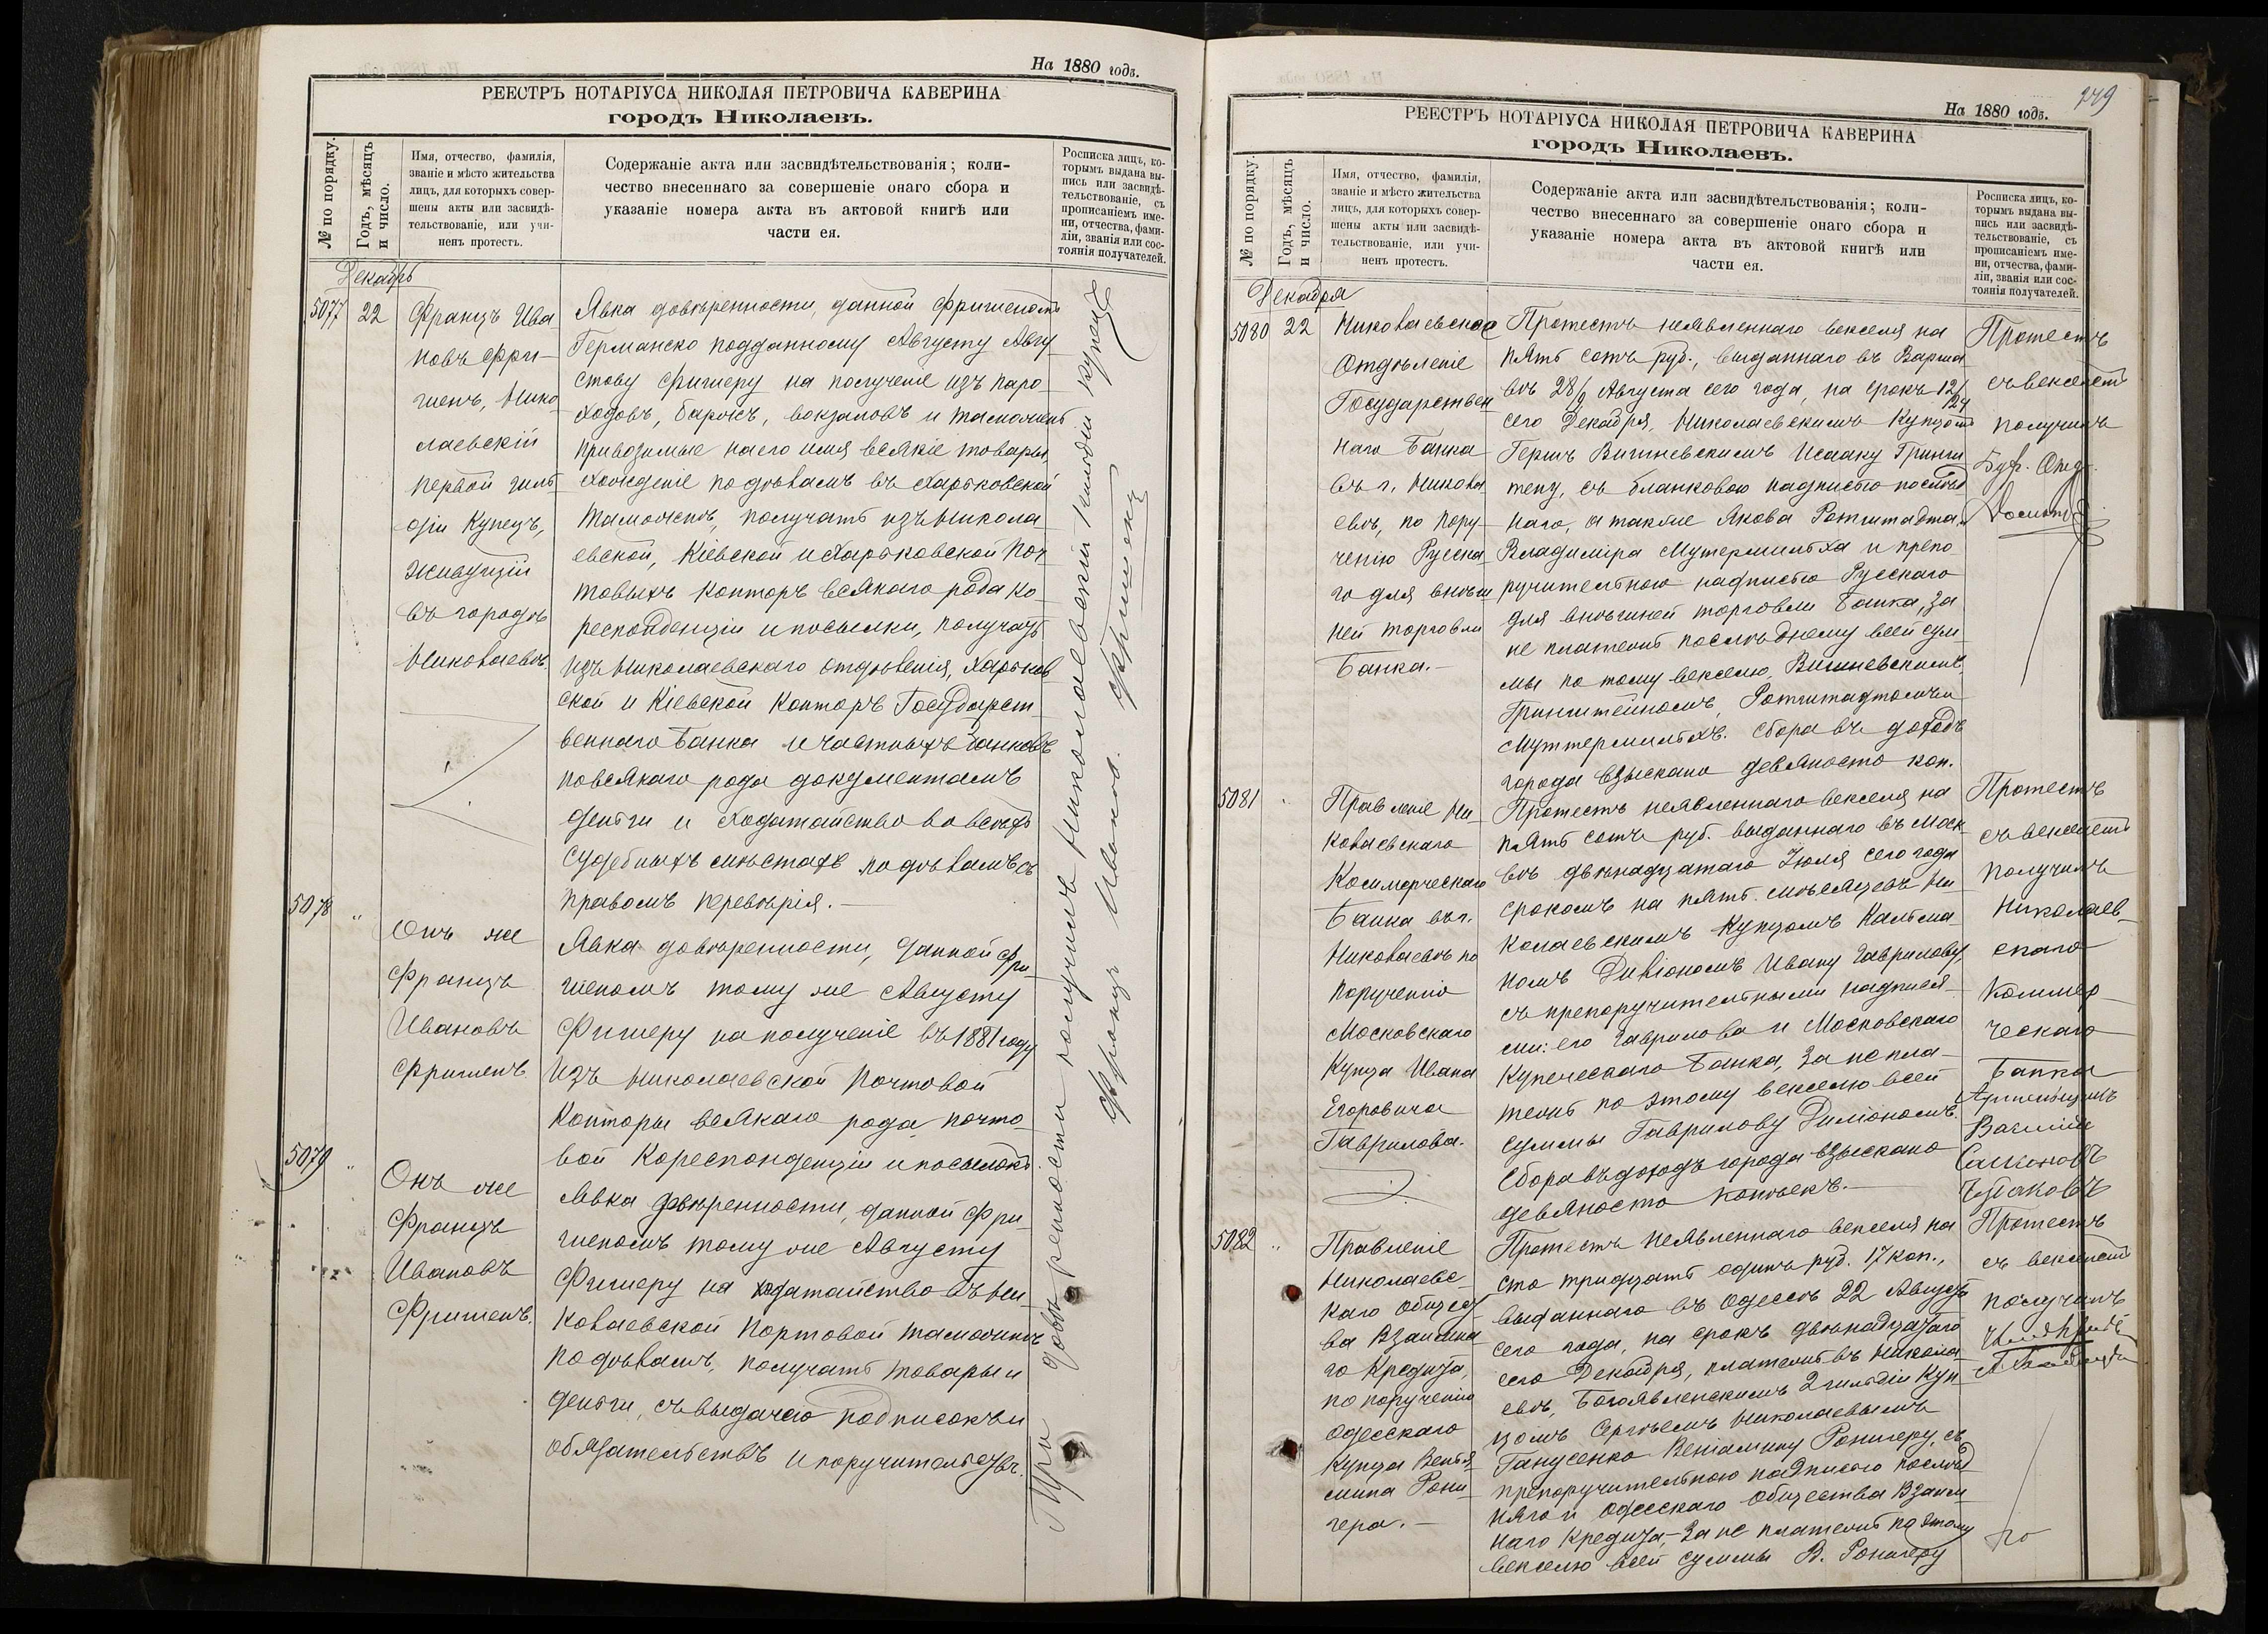 На 1880 годъ.
РЕЕСТРЪ НОТАРІУСА НИКОЛАЯ ПЕТРОВИЧА КАВЕРИНА
городъ Николаевъ.
№ по порядку.
Годъ, мѣсяцъ
и число.
Имя, отчество, фамилія,
званіе и мѣсто жительства
лицъ, для которыхъ совер-
шены акты или засвидѣ-
тельствованіе, или учи-
ненъ протестъ.
Содержаніе акта или засвидѣтельствованія; коли-
чество внесеннаго за совершеніе онаго сбора и
указаніе номера акта въ актовой книгѣ или
части ея.
Росписка лицъ, ко-
торымъ выдана вы-
пись или засвидѣ-
тельствованіе, съ
прописаніемъ име-
ни, отчества, фами-
ліи, званія или сос-
тоянія получателей.
Декабрь
5077
22
Францъ Ива
новъ Фри-
шенъ, Нико
лаевскій
первой гиль
діи Купецъ,
живущій
въ городѣ
Николаевѣ.
Явка довѣренности, данной Фришеномъ
Германско подданному Августу Авгу
стову Фишеру на полученіе изъ паро
ходовъ, баржъ, вокзаловъ и таможенъ
привозимые на его имя всякіе товары,
хожденіе по дѣламъ въ Харьковской
таможнѣ, получать изъ Никола
евской, Кіевской и Харьковской Поч
товыхъ Конторъ всякаго рода ко
респонденціи и посылки, получать
изъ Николаевскаго отдѣленія, Харьков
ской и Кіевской Конторъ Государст
веннаго Банка и частныхъ банковъ
по всякаго рода документамъ
деньги и ходатайство во всѣхъ
судебныхъ мѣстахъ по дѣламъ съ
правомъ перевѣрія.
5078
"
Онъ же
Францъ
Ивановъ
Фришенъ
Явка довѣренности, данной Фри
шеномъ тому же Августу
Фишеру на полученіе въ 1881 году
изъ Николаевской Почтовой
Конторы всякаго рода почто
вой Кореспонденціи и посылокъ.
5079
"
Онъ же
Францъ
Ивановъ
Фришенъ.
Явка довѣренности, данной Фри
шеномъ тому же Августу
Фишеру на ходатайство въ Ни-
колаевской Портовой таможнѣ
по дѣламъ, получать товары и
деньги, съ выдачею подписокъ и
обязательствъ и поручительствъ.
Три довѣренности получилъ Николаевскій 1 гильдіи купецъ
Францъ Ивановъ Фришенъ
249
На 1880 годъ.
РЕЕСТРЪ НОТАРІУСА НИКОЛАЯ ПЕТРОВИЧА КАВЕРИНА
городъ Николаевъ.
№ по порядку.
Годъ, мѣсяцъ
и число.
Имя, отчество, фамилія,
званіе и мѣсто жительства
лицъ, для которыхъ совер-
шены акты или засвидѣ-
тельствованіе, или учи-
ненъ протестъ.
Содержаніе акта или засвидѣтельствованія; коли-
чество внесеннаго за совершеніе онаго сбора и
указаніе номера акта въ актовой книгѣ или
части ея.
Росписка лицъ, ко-
торымъ выдана вы-
пись или засвидѣ-
тельствованіе, съ
прописаніемъ име-
ни, отчества, фами-
ліи, званія или сос-
тоянія получателей.
Декабря
5080
22
Николаевское
Отдѣленіе
Государствен
наго Банка
въ г. Никола
евѣ, по пору
ченію Русска
го для внѣш
ней торговли
Банка.
Протестъ неявленнаго векселя на
пять сотъ руб., выданнаго въ Варша
вѣ 28/9 Августа сего года, на срокъ 12/24
сего Декабря, Николаевскимъ Купцомъ
Гершъ Вишневскимъ Исааку Гринш
тену, съ бланковою надписью послѣд
наго, а также Якова Ротштадта,
Владиміра Мутермильха и препо
ручительною надписью Русскаго
для внѣшней торговли Банка, за
не платежъ послѣднему всей сум
мы по тому векселю, Вишневскимъ,
Гринштейномъ, Ротштадтомъ и
Муттермильхъ. Сбора въ доходъ
города взыскано девяносто коп.
Протестъ
съ векселемъ
получилъ
Бух. Отд.
5081
"
Правленіе Ни
колаевскаго
Коммерческаго
Банка въ г.
Николаевѣ по
порученію
Московскаго
Купца Ивана
Егоровича
Гаврилова.
Протестъ неявленнаго векселя на
пять сотъ руб. выданнаго въ Моск
вѣ двѣнадцатаго Іюля сего года
срокомъ на пять мѣсяцевъ Ни
колаевскимъ Купцомъ Кальма
номъ Диліономъ Ивану Гаврилову,
съ препоручительными надпися
ми: его Гаврилова и Московскаго
Купеческаго Банка, за не пла-
тежъ по этому векселю всей
суммы Гаврилову Диліономъ.
Сбора въ доходъ города взыскано
девяносто копѣекъ.
Протестъ
съ векселемъ
получилъ
Николаев-
скаго
Коммер-
ческаго
Банка
Артельщикъ
Василій
5082
"
Правленіе
Николаевс-
каго Общест
ва Взаимна
го Кредита,
по порученію
Одесскаго
Купца Венья
мина Рони
гера.
Протестъ неявленнаго векселя на
сто тридцать одинъ руб. 17 коп.,
выданнаго въ Одессѣ 22 Августа
сего года, на срокъ двѣнадцатаго
сего Декабря, платежъ въ Никола
евѣ, Богоявленскимъ 2 гильдіи Куп
цомъ Сергѣемъ Николаевымъ
Ганусенко Веніамину Ронигеру, съ
препоручительною надписью послѣд
няго и Одесскаго Общества Взаим
наго Кредита, за не платежъ по этому
векселю всей суммы В. Ронигеру
Протестъ
съ векселемъ
получилъ